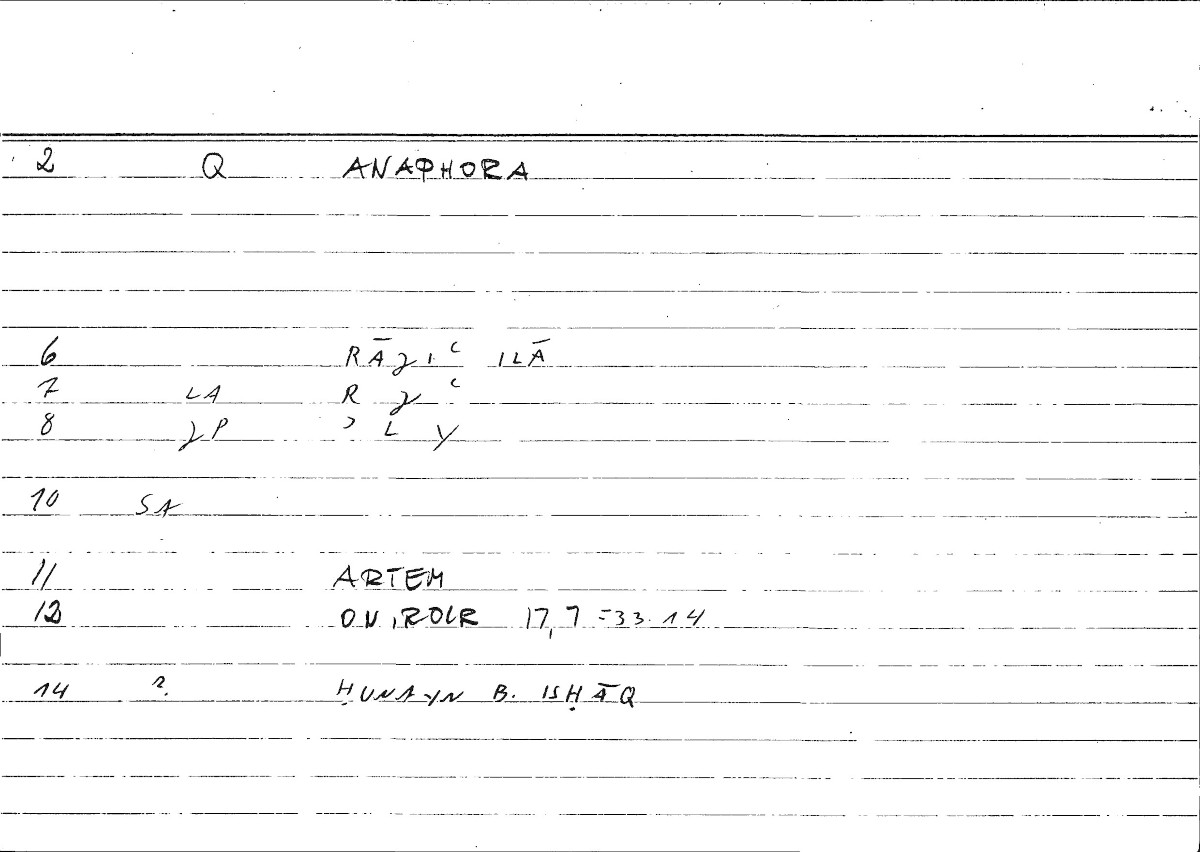 2 Q ANAPHORA
6 RĀȜIʿ ILĀ
7 LA R Ȝ ʿ
8 ȜP ʾ L Y
10 SA
11 ARTEM
12 ONIROCR 17,7 = 33.14
14 2. ḤUNAYN B. ISḤĀQ